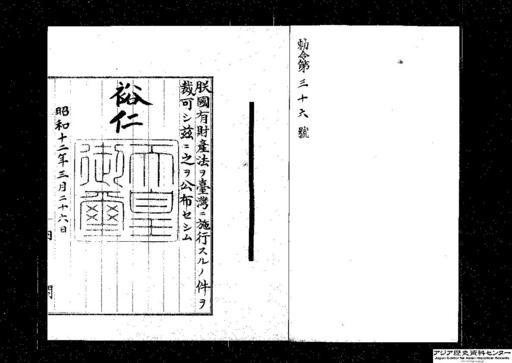 勅令第三十六號
朕國有財產法ヲ臺灣ニ施行スルノ件ヲ
裁可シ茲ニ之ヲ公布セシム
裕仁
天皇御璽
昭和十二年三月二十六日
内閣
アジア歴史資料センター
Japan Center for Asian Historical Records